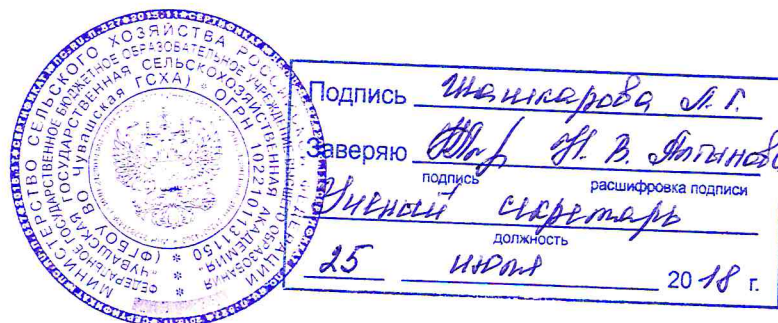 МИНИСТЕРСТВО СЕЛЬСКОГО ХОЗЯЙСТВА РОССИЙСКОЙ ФЕДЕРАЦИИ
ФЕДЕРАЛЬНОЕ ГОСУДАРСТВЕННОЕ БЮДЖЕТНОЕ ОБРАЗОВАТЕЛЬНОЕ УЧРЕЖДЕНИЕ ВЫСШЕГО ОБРАЗОВАНИЯ
"ЧУВАШСКАЯ ГОСУДАРСТВЕННАЯ СЕЛЬСКОХОЗЯЙСТВЕННАЯ АКАДЕМИЯ"
(ФГБОУ ВО Чувашская ГСХА) * ОГРН 1022101131150 *
Подпись Шашкарова Л. Г.
Заверяю Н. В. Алтынова
подпись расшифровка подписи
Ученый секретарь
должность
25 июня 2018 г.